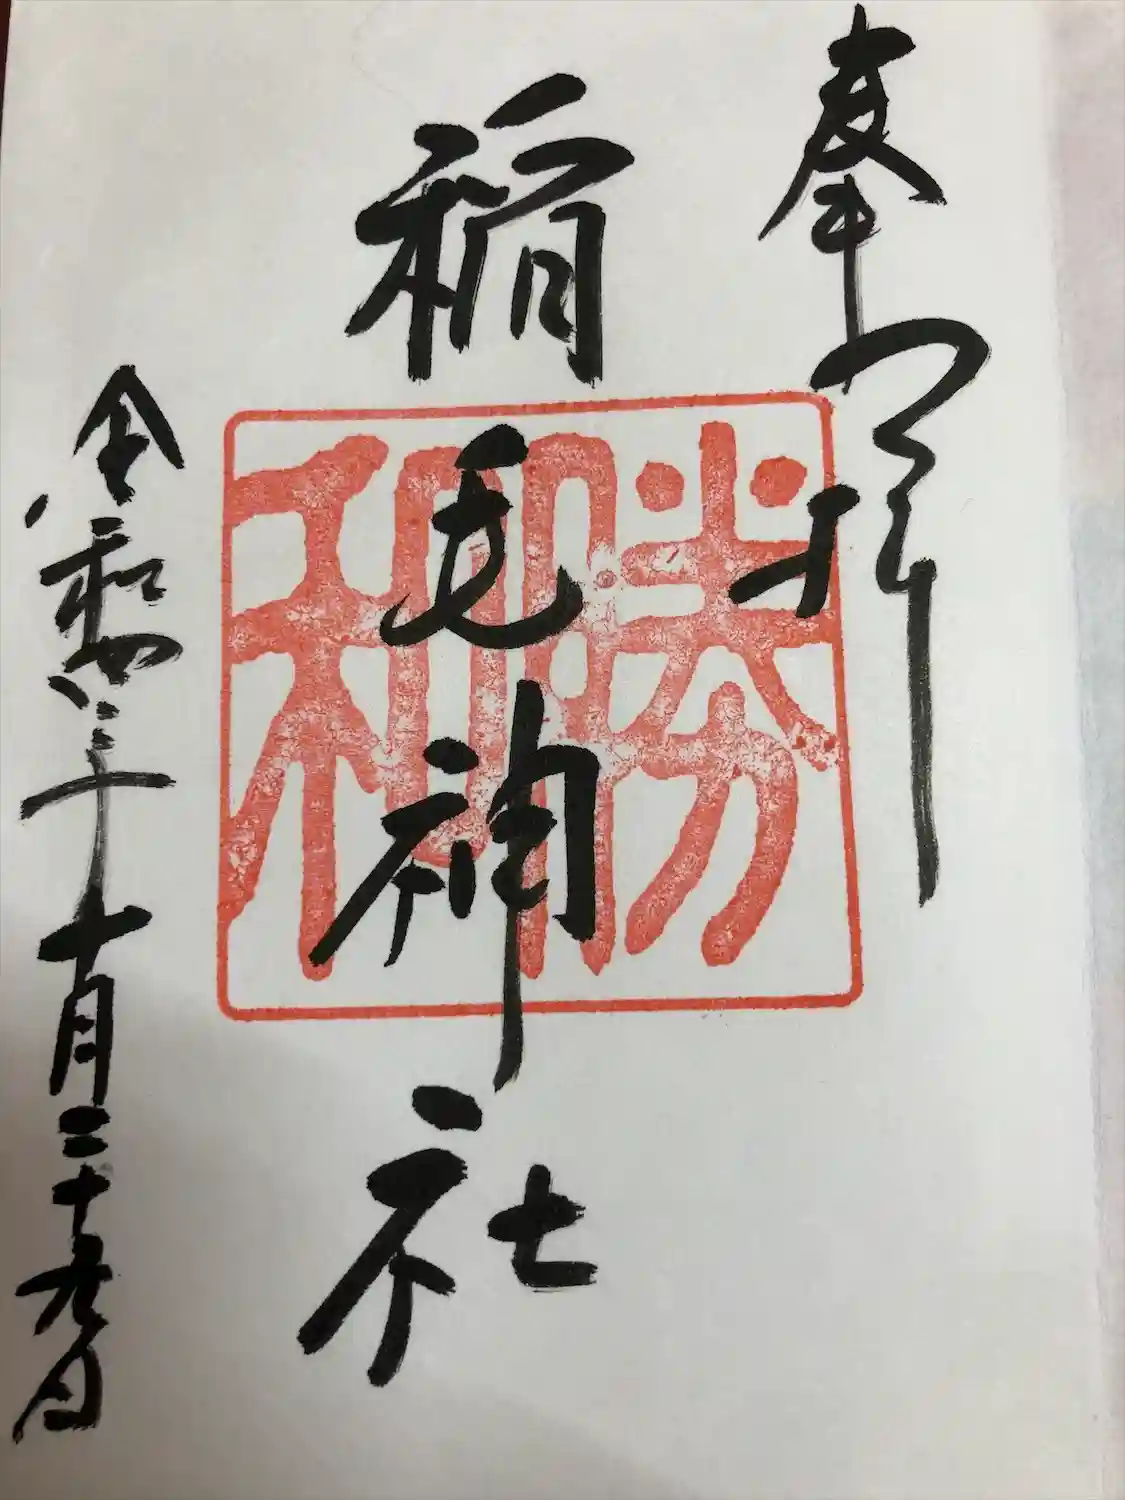 奉拝
稲毛神社
勝和
令和四年十月二十九日